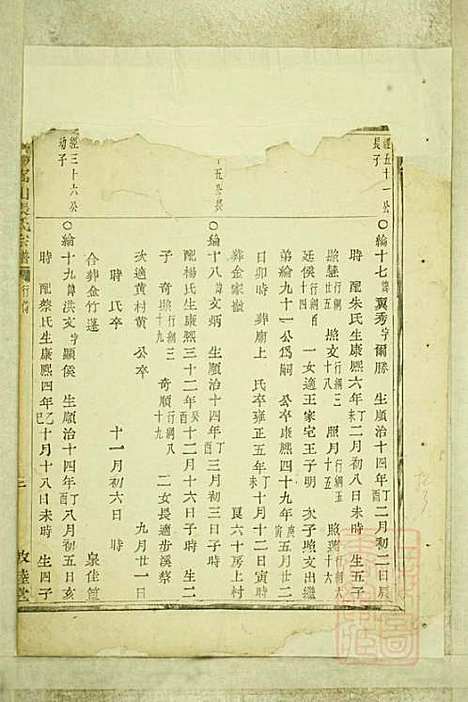 經五十一公
長子
〇綸十七諱翼秀字爾勝 生順治十四年丁酉二月初二日辰
時 配朱氏生康熙六年丁未二月初八日未時 生五子
廷俟十四 一女適王家宅王子明 次子照文出繼
弟綸九十一公爲嗣 公卒康熙四十九年庚寅五月廿二
日卯時 葬廟上 氏卒雍正五年丁未十月十二日寅時
葬金家 艮六十房上村
五公長
〇綸十八諱文炳 生順治十四年丁酉三月初三日子時
配楊氏生康熙三十二年癸酉十二月十六日子時 生二
子 奇 行網八十九 奇順行網八十九 二女長適步溪蔡
次適黄村黄 公卒 九月廿一日
時 氏卒 十一月初六日 時
合葬金竹蓬 泉佳
經三十六公
幼子
〇綸十九諱洪文字顯侯 生順治十四年丁酉八月初五日亥
時 配蔡氏生康熙四年乙巳十月十八日未時 生四子
山張氏宗譜 行
敦睦堂